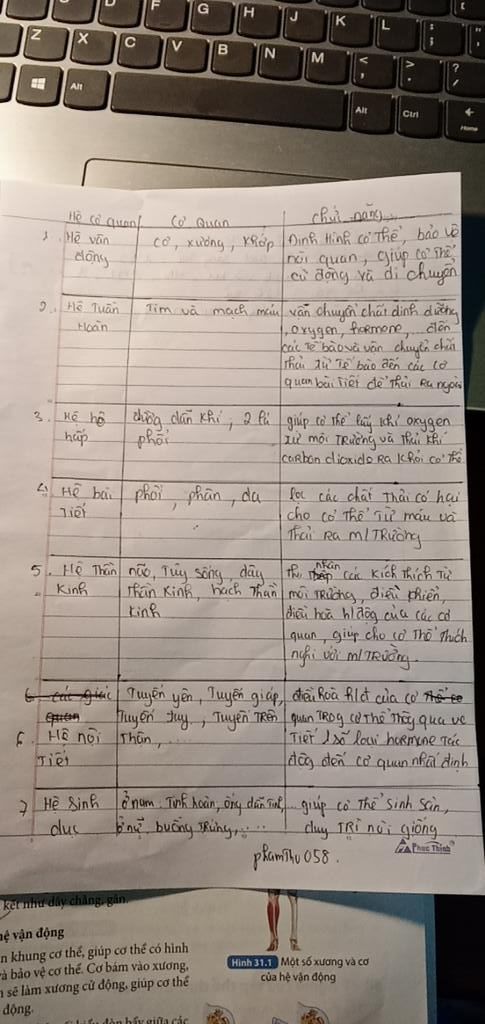 F G H J K L
Z X C V B N M
Alt Alt Ctrl
Home
Hệ cơ quan Cơ Quan chức năng
1. Hệ vận động cơ, xương, khớp Định Hình cơ thể, bảo vệ
nội quan, giúp cơ thể
cử động và di chuyển
2. Hệ Tuần Hoàn Tim và mạch máu vận chuyển chất dinh dưỡng
, oxygen, hormone, ... đến
các tế bào và vận chuyển chất
thải từ tế bào đến các cơ
quan bài tiết để thải ra ngoài
3. Hệ hô hấp đường dẫn khí, 2 lá phổi giúp cơ thể lấy khí oxygen
từ môi trường và thải khí
carbon dioxide ra khỏi cơ thể
4. Hệ bài tiết phổi, phân, da lọc các chất thải có hại
cho cơ thể từ máu và
thải ra m/trường
5. Hệ Thần Kinh não, Tủy sống, dây
thần kinh, hạch thần
kinh
thu nhận các kích thích từ
môi trường, điều khiển,
điều hoà h/động của các cơ
quan, giúp cho cơ thể thích
nghi với m/trường.
6. Hệ nội Tiết Tuyến yên, Tuyến giáp,
Tuyến tụy, Tuyến trên
thận, ...
điều hoà h/đ của cơ
quan trog cơ thể thông qua
tiết 1 số loại hormone tác
động đến cơ quan nhất định
7 Hệ Sinh dục ở nam: Tinh hoàn, ống dẫn tinh,
ở nữ: buồng trứng, ....
giúp cơ thể sinh sản,
duy trì nòi giống
phamThu 058.
Phúc Thịnh
kết như dây chằng, gân.
hệ vận động
n khung cơ thể, giúp cơ thể có hình
và bảo vệ cơ thể. Cơ bám vào xương,
n sẽ làm xương cử động, giúp cơ thể
động.
Hình 31.1 Một số xương và cơ
của hệ vận động
đòn bẩy giữa các